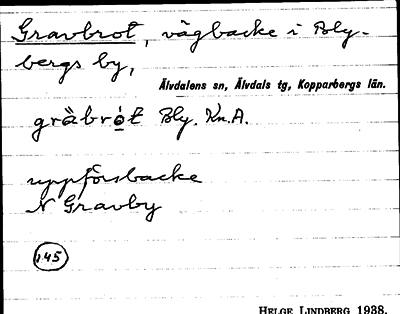 Gravbrot, vägbacke i Bly-
bergs by,
Älvdalens sn, Älvdals tg, Kopparbergs län.
gràbrọ́t Bly. Kn.A.
uppförsbacke
N Gravby
145
HELGE LINDBERG 1938.